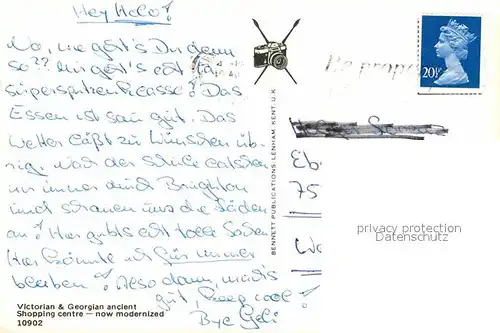 Hey Helo!
No, wie geht's Du denn
so?? Mir geht's echt
superspitzenklasse! Das
Essen ist saugut. Das
Wetter läßt zu Wünschen üb-
rig. Nach der Schule latschen
wir immer durch Brighton
und schauen uns die Läden
an! Hier gibts echt tolle Sachen
Hier könnte ich für immer
bleiben! Also dann, machs
gut, keep cool!
Bye Geli
Victorian & Georgian ancient
Shopping centre — now modernized
10902
BENNETT PUBLICATIONS. LENHAM. KENT. U.K.
20½P
75
privacy protection
Datenschutz